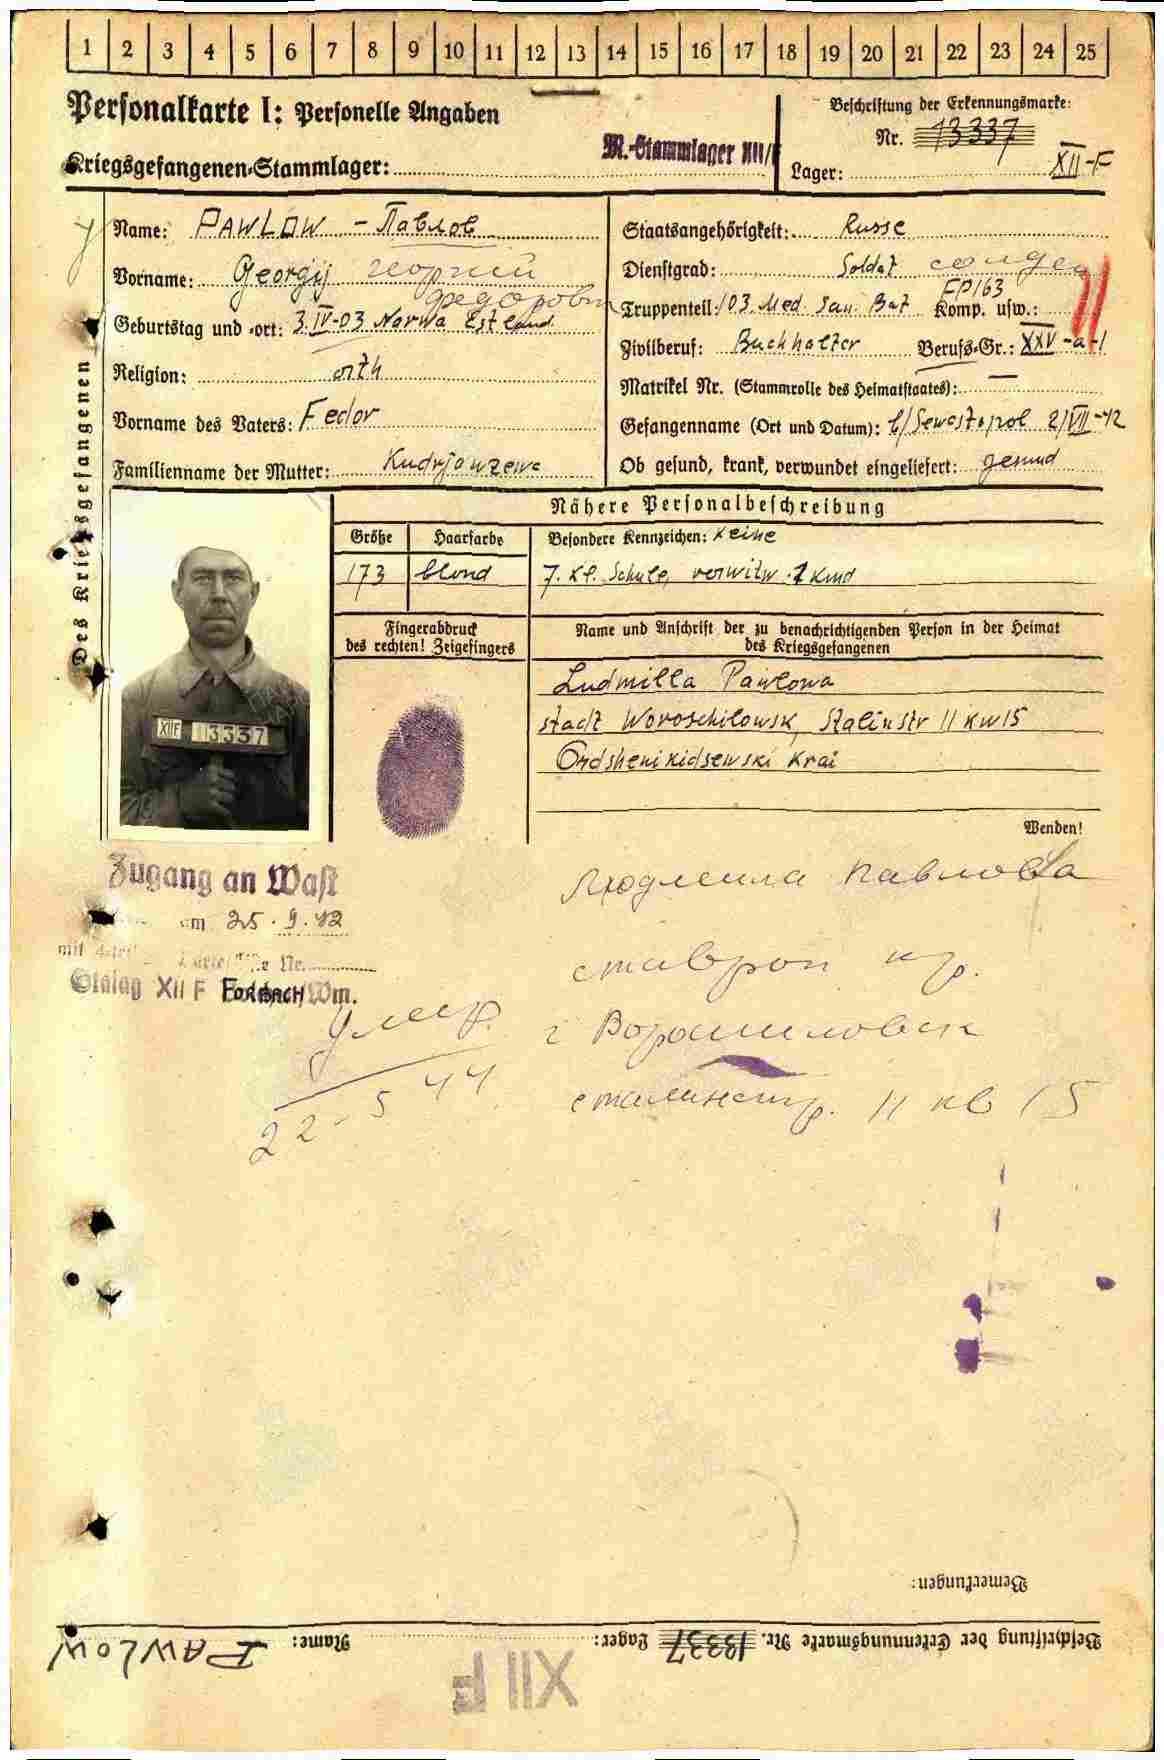 1 2 3 4 5 6 7 8 9 10 11 12 13 14 15 16 17 18 19 20 21 22 23 24 25
Personalkarte I: Personelle Angaben
Kriegsgefangenen-Stammlager: M.-Stammlager XII/F
Beschriftung der Erkennungsmarke:
Nr. 13337
Lager: XII-F
Des Kriegsgefangenen
Name: PAWLOW - Павлов
Vorname: Georgij Георгий
Федорович
Geburtstag und -ort: 3.IV-03 Narwa Estland
Religion: orth
Vorname des Vaters: Fedor
Familienname der Mutter: Kudrjawzewa
Staatsangehörigkeit: Russe
Dienstgrad: Soldat солдат
FP163
Truppenteil: 103. Med. San. Bat Komp. usw.:
Zivilberuf: Buchhalter Berufs-Gr.: XXV-a-1
Matrikel Nr. (Stammrolle des Heimatstaates): —
Gefangenname (Ort und Datum): b/Sewastopol 2/VII-42
Ob gesund, krank, verwundet eingeliefert: gesund
Nähere Personalbeschreibung
Größe Haarfarbe Besondere Kennzeichen: keine
173 blond 7. Kl. Schule, verwitw. 1 Kind
Fingerabdruck
des rechten! Zeigefingers
Name und Anschrift der zu benachrichtigenden Person in der Heimat
des Kriegsgefangenen
Ludmilla Pawlowa
stadt Woroschilowsk, Stalinstr 11 kw 15
Ordshenikidsewski Krai
XIIF 13337
Wenden!
Zugang an Wast
am 25.9.42
mit
Nr.
Stalag XII F FORBACH/Wm.
Людмила Павлова
ставроп кр.
г Ворошиловск
сталинстр. 11 кв 15
умер.
22-5 44
Bemerkungen:
Beschriftung der Erkennungsmarke Nr. 13337 Lager: Name: PAWLOW
XII F